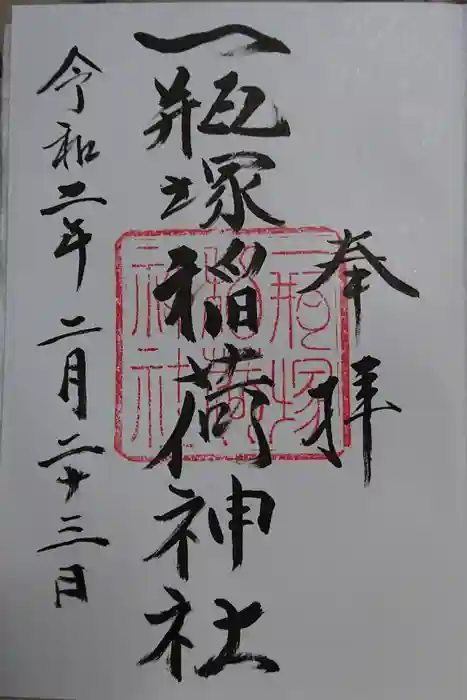 奉拝
一瓶塚稲荷神社
令和二年二月二十三日
一瓶塚
稲荷
神社